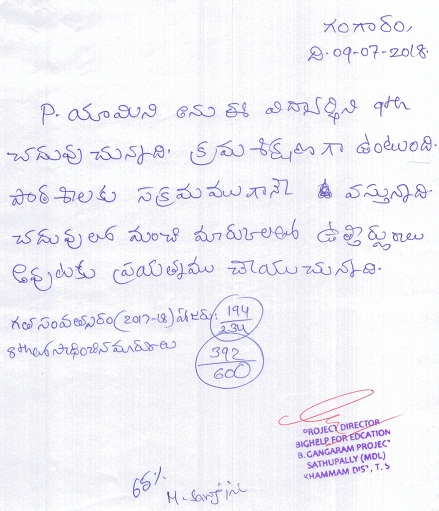 గంగారం,
ది. 09-07-2018.
P. యామిని అను ఈ విద్యార్థిని 9th
చదువు చున్నాది. క్రమ శిక్షణగా ఉంటుంది.
పాఠశాలకు సక్రమముగానే వస్తున్నాది.
చదువులో మంచి మార్కులతో ఉత్తీర్ణురాలు
అవుటకు ప్రయత్నము చేయు చున్నాది.
గత సంవత్సరం (2017-18) హాజరు: 194/234
8thలో సాధించిన మార్కులు 392/600
65%
M. Sarojini
PROJECT DIRECTOR
BIGHELP FOR EDCATION
B. GANGARAM PROJECT
SATHUPALLY (MDL)
KHAMMAM DIST, T.S